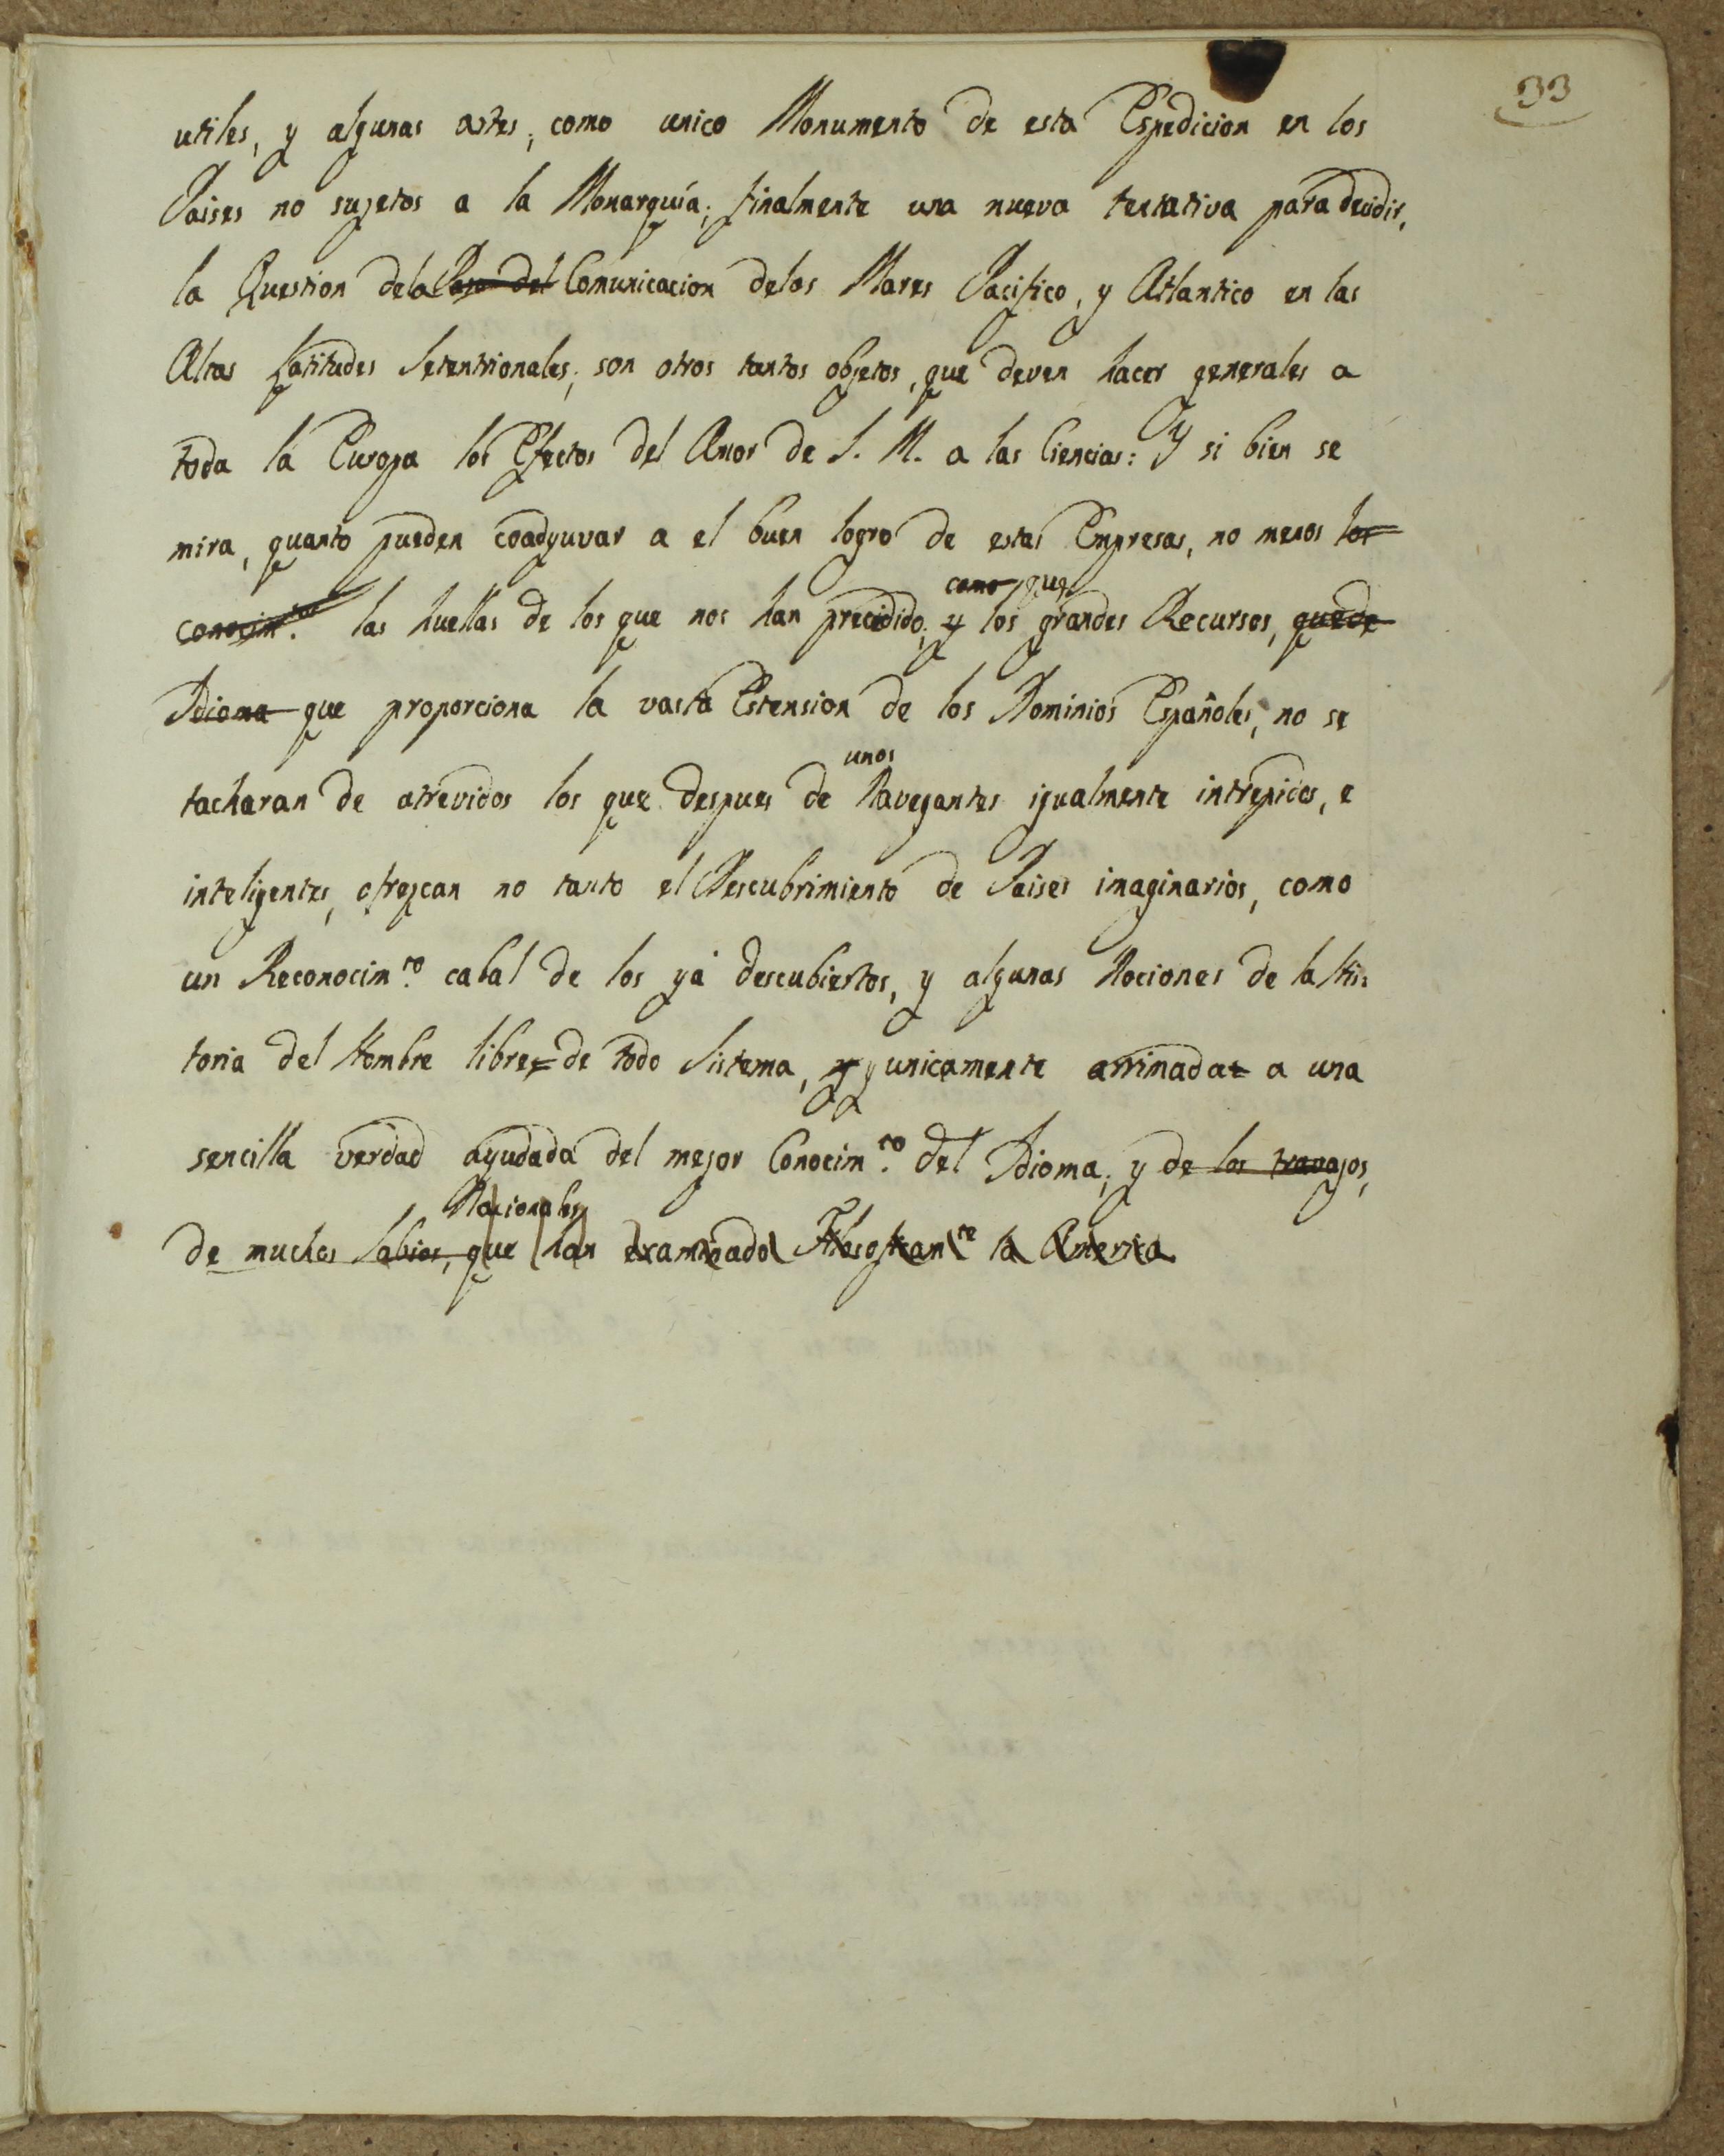 33
utiles, y algunas artes; como unico Monumento de esta Espedicion en los
Paises no sujetos a la Monarquía; finalmente una nueva tentativa para decidir,
la Question dela Paso del Comunicacion delos Mares Pacifico, y Atlantico en las
Altas Latitudes Setentrionales; son otros tantos objetos, que deven hacer generales a
toda la Europa los Efectos del Amor de S. M. a las Ciencias: Y si bien se
mira, quanto pueden coadyuvar a el buen logro de estas Empresas, no menos los
como que
conocim.tos las huellas de los que nos han precidido; y los grandes Recursos, que de
Idioma que proporciona la vasta Estension de los Dominios Españoles; no se
unos
tacharan de atrevidos los que despues de Navegantes igualmente intrepidos, e
inteligentes, ofrezcan no tanto el Descubrimiento de Paises imaginarios, como
un Reconocim.to cabal de los yá descubiertos, y algunas Nociones de la His:
toria del Hombre libres de todo Sistema, y y unicamente arrimadas a una
sencilla verdad ayudada del mejor Conocim.to del Idioma; y de los travajos,
Nacionales
de muchos Sabios, que han examinado Filosofican.te la America